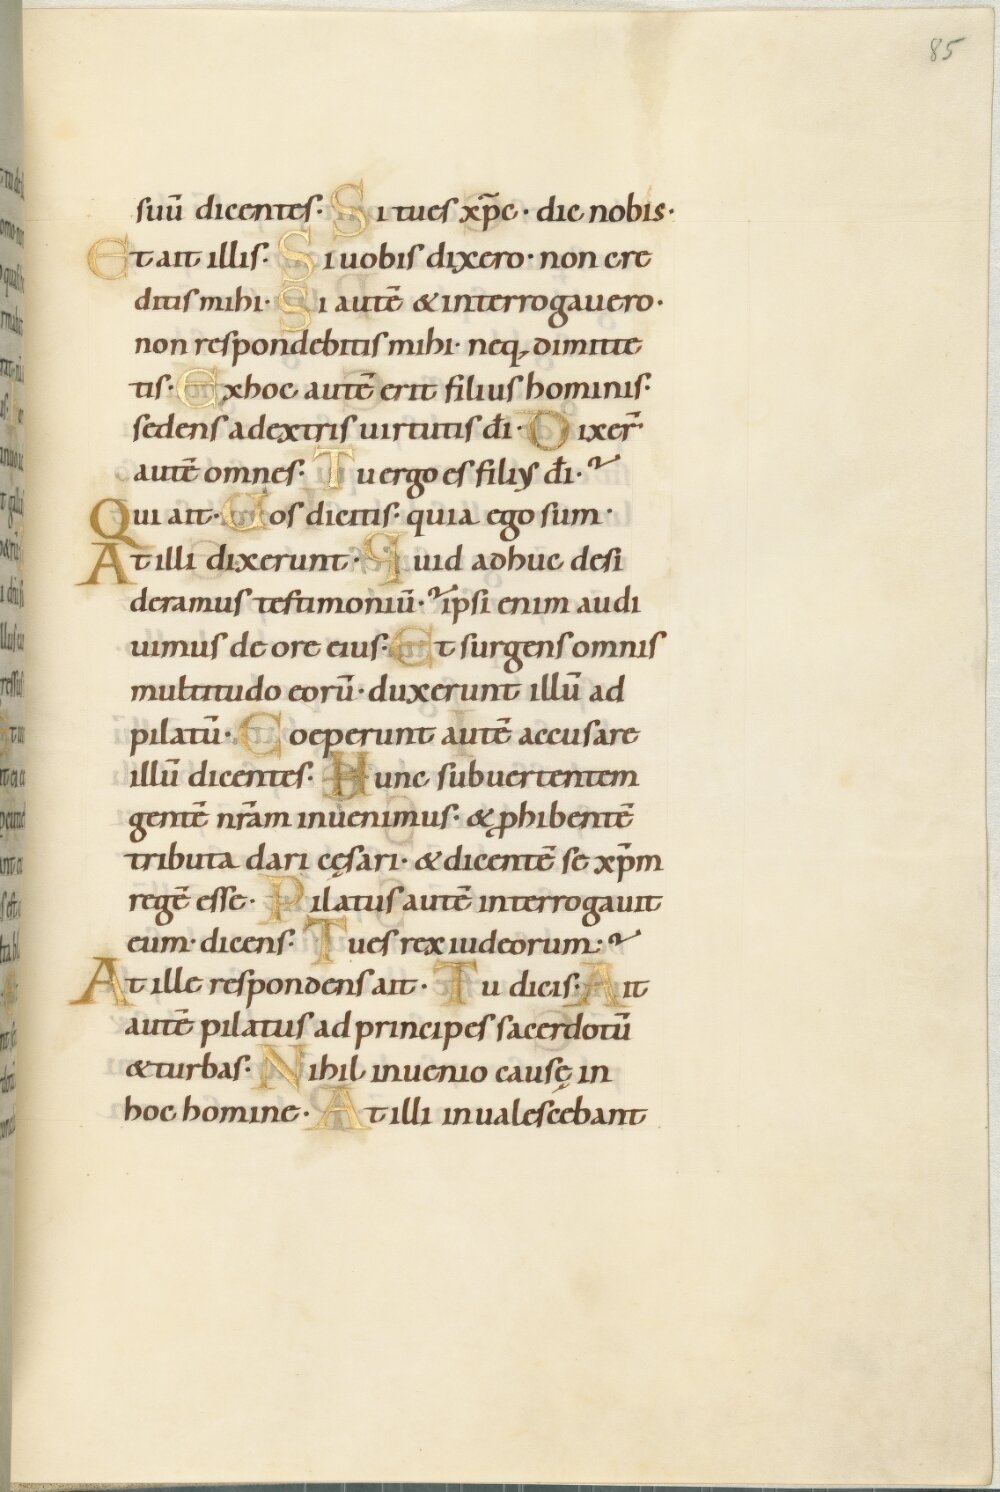 85
suū dicentes· Si tu es xp̄c· dic nobis·
Et ait illis· Si uobis dixero· non cre
ditis mihi· Si autē & interrogauero·
non respondebitis mihi· neq, dimitte
tis· Ex hoc autē erit filius hominis·
sedens a dextris uirtutis dī· Dixer̄
autē omnes· Tu ergo es filiꝰ dī·
Qui ait· Uos dicitis· quia ego sum·
At illi dixerunt· Quid adhuc desi
deramus testimoniū· ipsi enim audi
uimus de ore eius· Et surgens omnis
multitudo eorū· duxerunt illū ad
pilatū· Coeperunt autē accusare
illū dicentes· Hunc subuertentem
gentē nr̄am inuenimus· & ꝓhibentē
tributa dari cęsari· & dicentē se xp̄m
regē esse· Pilatus autē interrogauit
eum· dicens· Tu es rex iudeorum·
At ille respondens ait· Tu dicis· Ait
autē pilatus ad principes sacerdotū
& turbas· Nihil inuenio causę in
hoc homine· At illi inualescebant